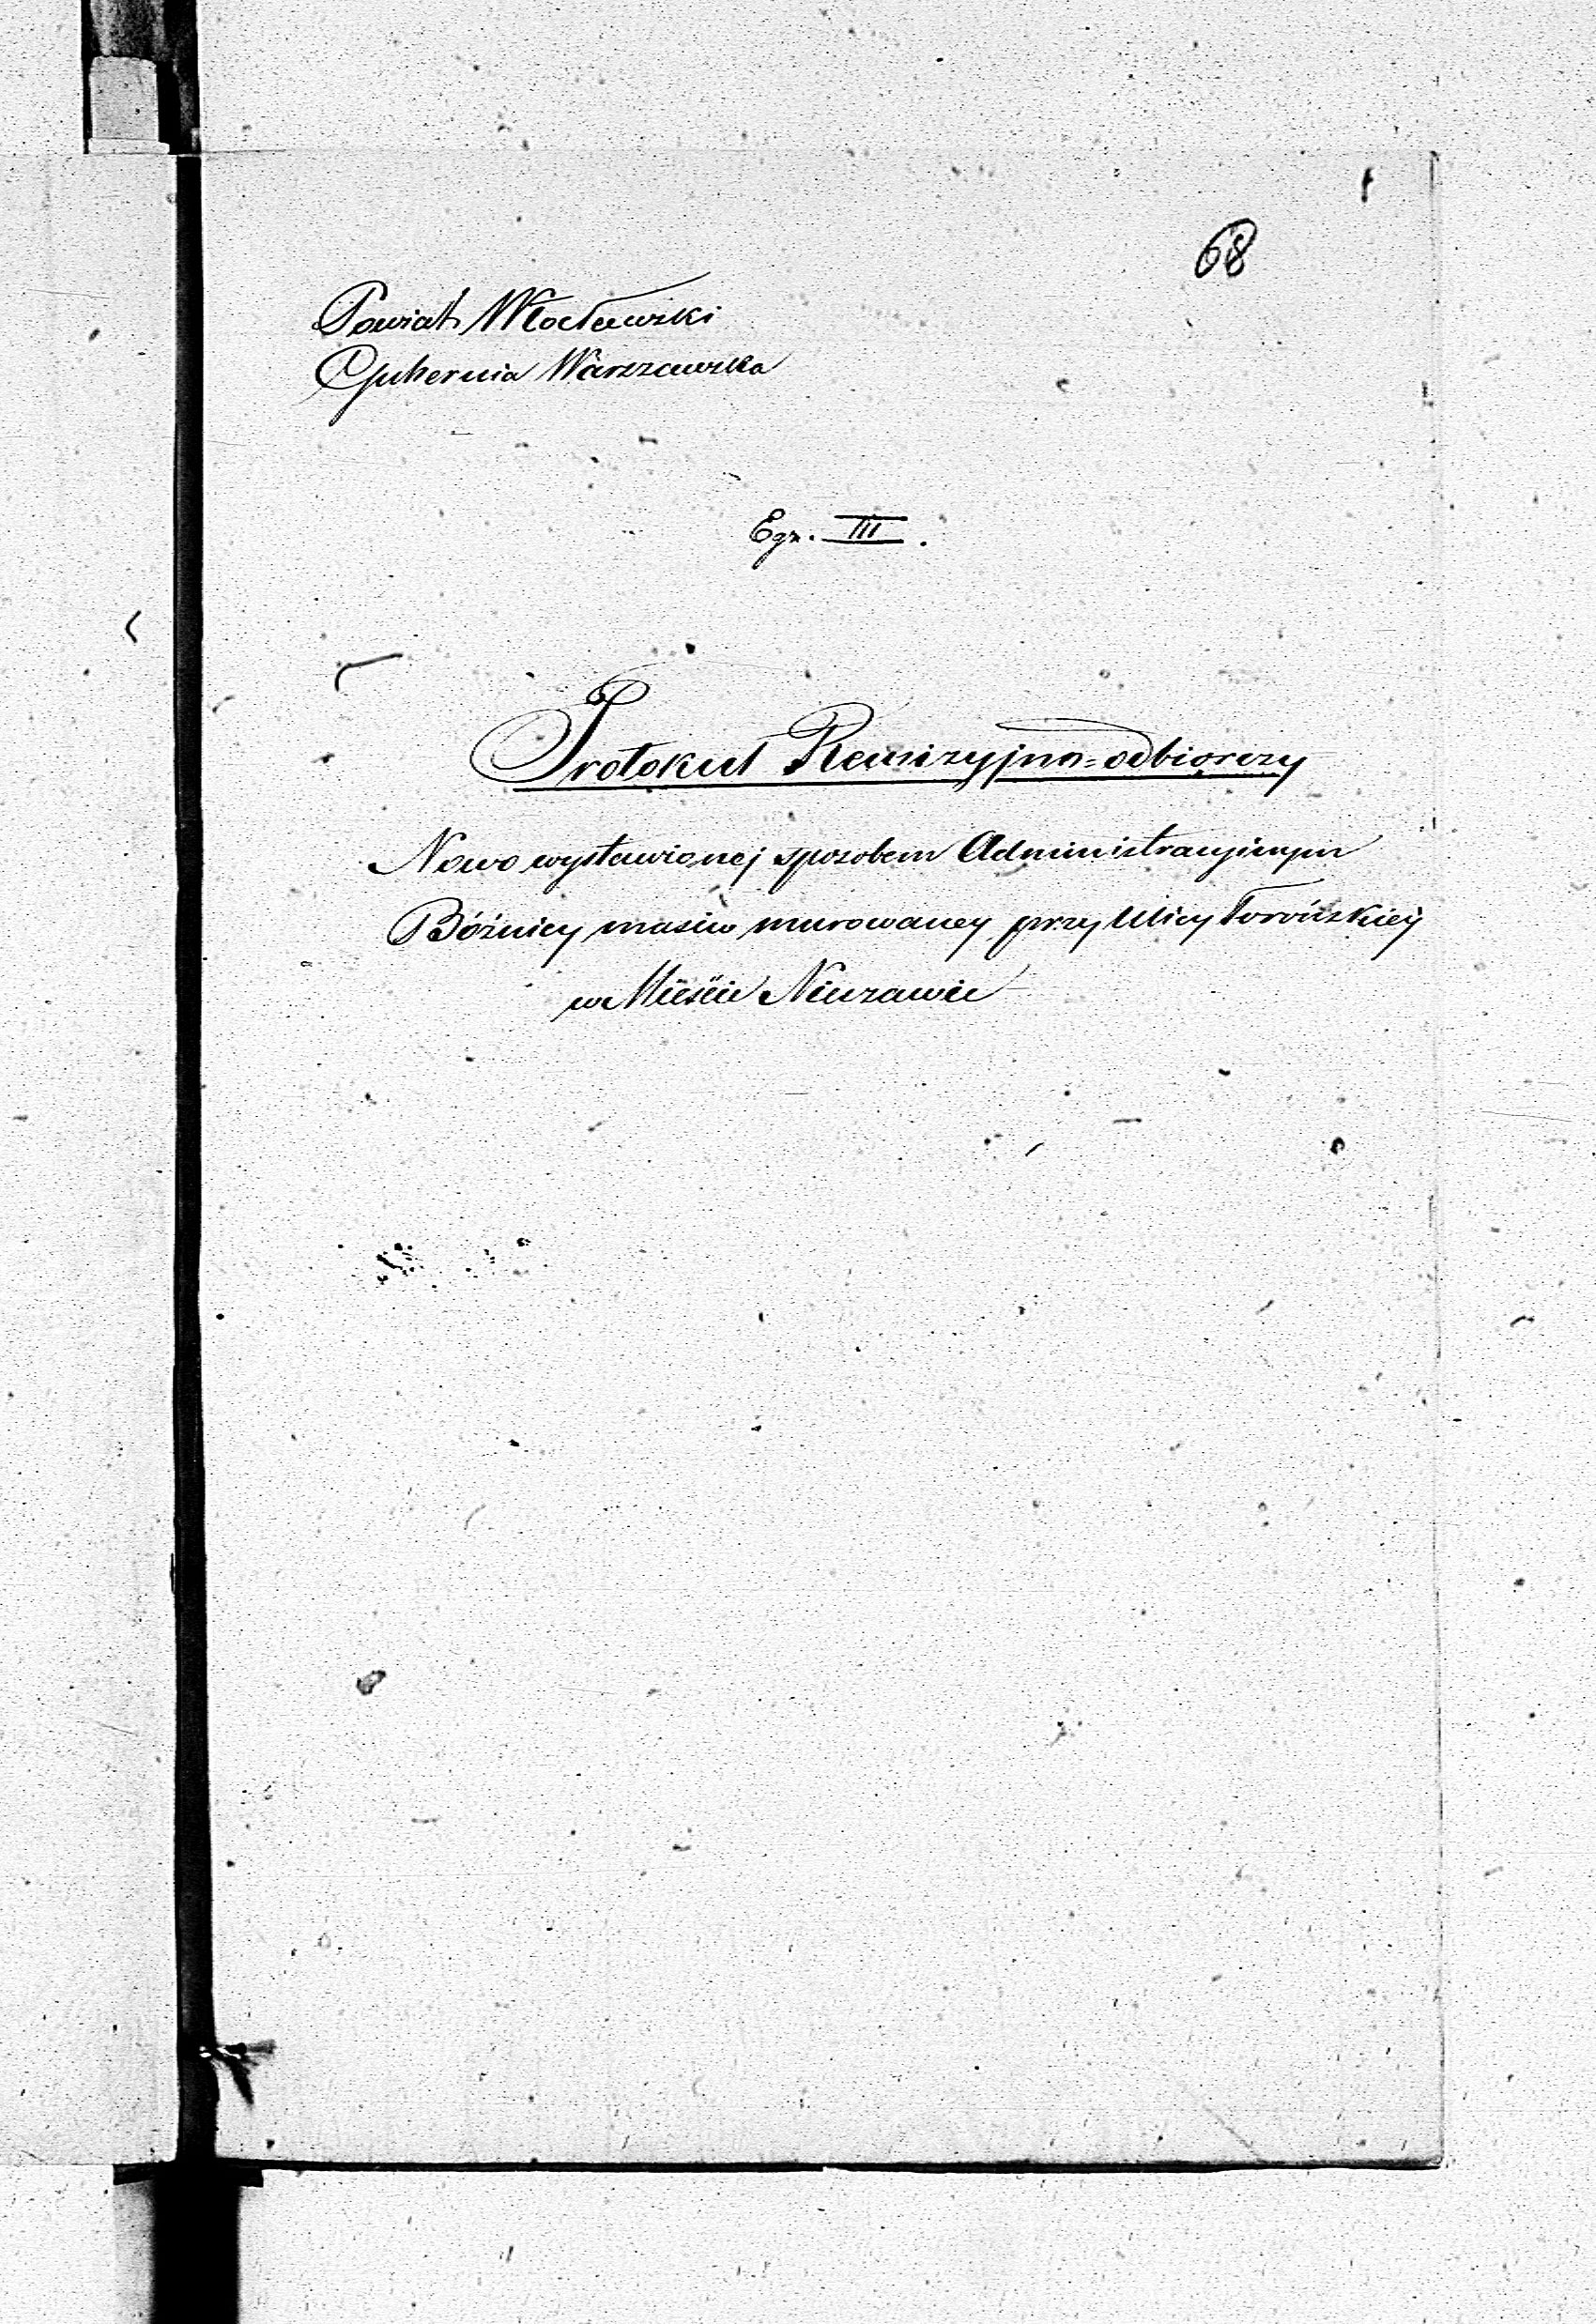 68
Powiat Włocławski
Gubernia Warszawska
Egz. III.
Protokuł Rewizyjno=odbiorczy
Nowo wystawionej sposobem Administracyjnym
Bóżnicy masiw murowaney przy Ulicy Toruńskiéj
w Mieście Nieszawie